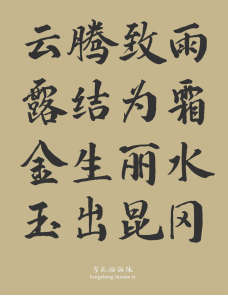 云腾致雨
露结为霜
金生丽水
玉出昆冈